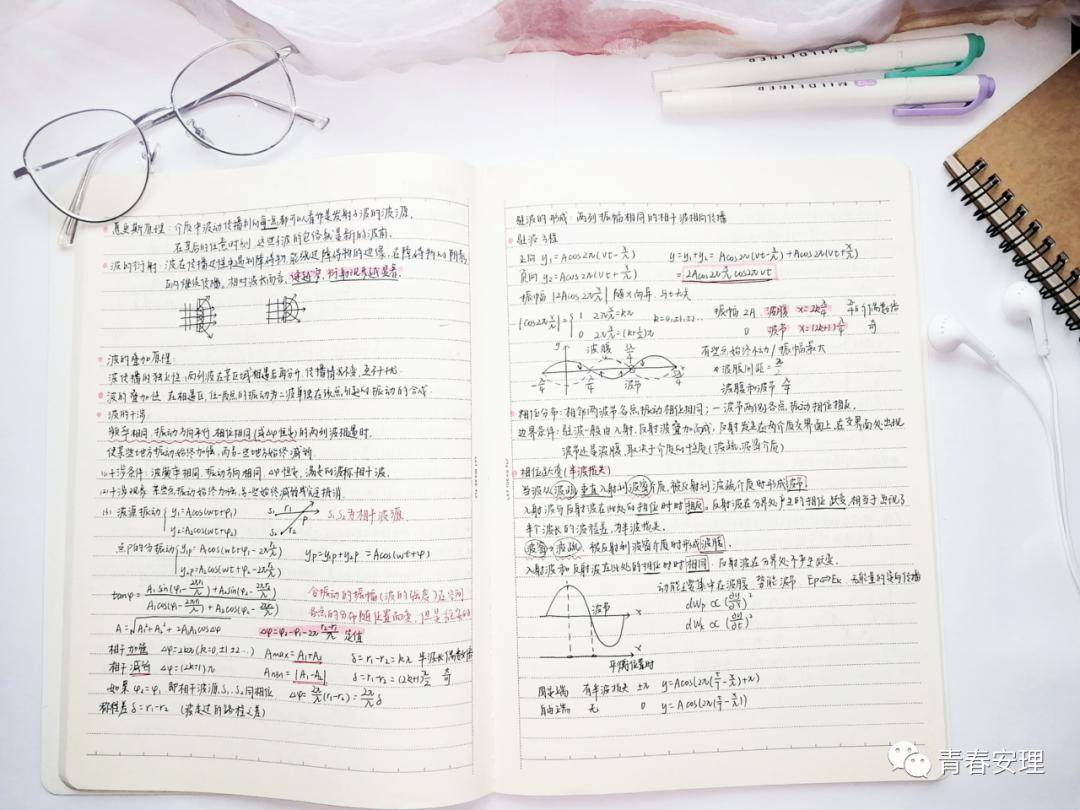 MILDLINER
MILDLINER
惠更斯原理：介质中波动传播到的每一点都可以看作是发射子波的波源，
在其后的任意时刻，这些子波的包络就是新的波前。
波的衍射：波在传播过程中遇到障碍物，能绕过障碍物的边缘，在障碍物的阴影
区内继续传播。相对波长而言，
衍射现象越显著。
波的叠加原理：
波传播的独立性：两列波在某区域相遇后再分开，传播情况不变，互不干扰。
波的叠加性：在相遇区，任一质点的振动为二波单独在该点引起的振动的合成。
波的干涉：
频率相同，振动方向平行，相位相同(或Δφ恒定)的两列波相遇时，
使某些地方振动始终加强，而另一些地方始终减弱。
(1)干涉条件：波频率相同，振动方向相同，Δφ恒定，满足的波称相干波。
(2)干涉现象：某些点振动始终加强，另一些始终减弱或完全抵消。
(3) 波源振动 y₁=A₁cos(ωt+φ₁)
y₂=A₂cos(ωt+φ₂)
S₁ r₁ P
S₂ r₂
S₁ S₂为相干波源.
点P的分振动 y₁p=A₁cos(ωt+φ₁-2π r₁/λ)
y₂p=A₂cos(ωt+φ₂-2π r₂/λ)
yp=y₁p+y₂p =Acos(ωt+φ)
tanφ= A₁sin(φ₁-2πr₁/λ)+A₂sin(φ₂-2πr₂/λ) / A₁cos(φ₁-2πr₁/λ)+A₂cos(φ₂-2πr₂/λ)
合振动的振幅(波的强度)在空间
各点的分布随位置而变，但是稳定的
A=√A₁²+A₂²+2A₁A₂cosΔφ
Δφ=φ₂-φ₁-2π (r₂-r₁)/λ 定值
相干加强 Δφ=2kπ(k=0,±1,±2…) Amax=A₁+A₂ δ=r₁-r₂=kλ 半波长偶数倍
相干减弱 Δφ=(2k+1)π Amin=|A₁-A₂| δ=r₁-r₂=(2k+1)λ/2 奇
如果 φ₂=φ₁，即相干波源S₁、S₂同相位 Δφ=2π/λ(r₁-r₂)=2π/λ δ
称程差 δ=r₁-r₂ (波走过的路程之差)
驻波的形成：两列振幅相同的相干波相向传播
驻波方程
正向 y₁=Acos2π(νt-x/λ) y=y₁+y₂=Acos2π(νt-x/λ)+Acos2π(νt+x/λ)
负向 y₂=Acos2π(νt+x/λ) =2Acos2π x/λ cos2πνt
振幅 |2Acos2π x/λ| 随x而异，与t无关
|cos2π x/λ|= 1 2π x/λ=kπ k=0,±1,±2… 振幅 2A 波腹 x=2k λ/4 λ/4的偶数倍
0 2π x/λ=(k+1/2)π 0 波节 x=(2k+1)λ/4 奇
y 波腹 x
-λ/4 λ/4 波节 5λ/4
有些点始终不动/振幅最大
波腹间距= λ/2
波腹和波节 λ/4
相位分布：相邻两波节各点振动相位相同；一波节两侧各点，振动相位相反。
边界条件：驻波一般由入射、反射波叠加而成，反射发生在两个介质交界面上，在交界面处出现
波节还是波腹，取决于介质的性质(波疏，波密介质)
相位跃变(半波损失)
当波从波疏垂直入射到波密介质，被反射到波疏介质时形成波节。
入射波与反射波在此处的相位时时相反。反射波在分界处产生π的相位跃变，相当于出现了
半个波长的波程差，为半波损失。
波密→波疏，被反射到波密介质时形成波腹。
入射波和反射波在此处的相位时时相同，反射波在分界处不产生跃变。
波节 x
动能主要集中在波腹，势能波节 Ep⇔Ek 无能量的定向传播
dWp ∝ (∂y/∂x)²
dWk ∝ (∂y/∂t)²
x
平衡位置时
固定端 有半波损失 ±π y=Acos(2π(t/T-x/λ)+π)
自由端 无 0 y=Acos(2π(t/T-x/λ))
青春安理